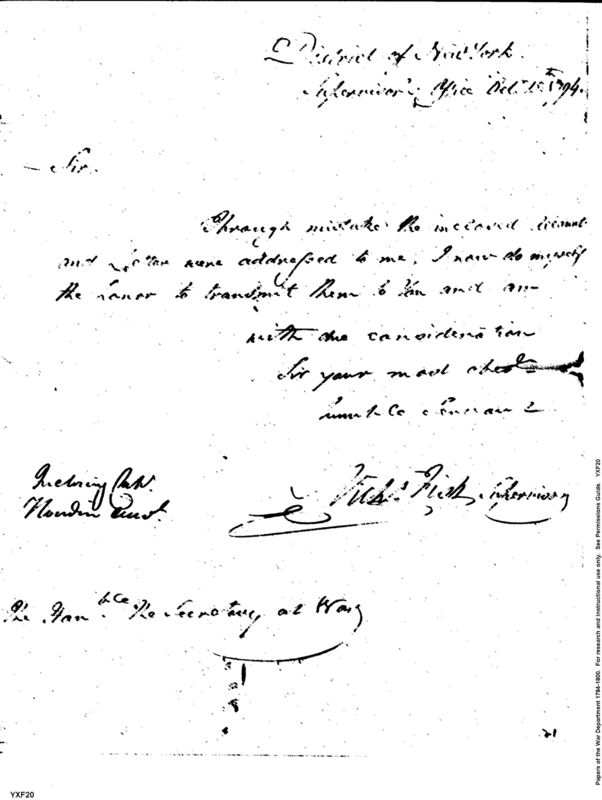 District of New York
Supervisor's Office Oct. 15th 1794.
Sir.
Through mistake the inclosed Account
and Letter were addressed to me, I now do myself
the honor to transmit them to You and am
with due consideration
Sir your most obedt
humble Servant
Inclosing Capt.
Acct.
Nichs Fish Supervisor
The Honble The Secretary at War
21
YXF20
Papers of the War Department 1784-1800. For research and instructional use only. See Permissions Guide. YXF20